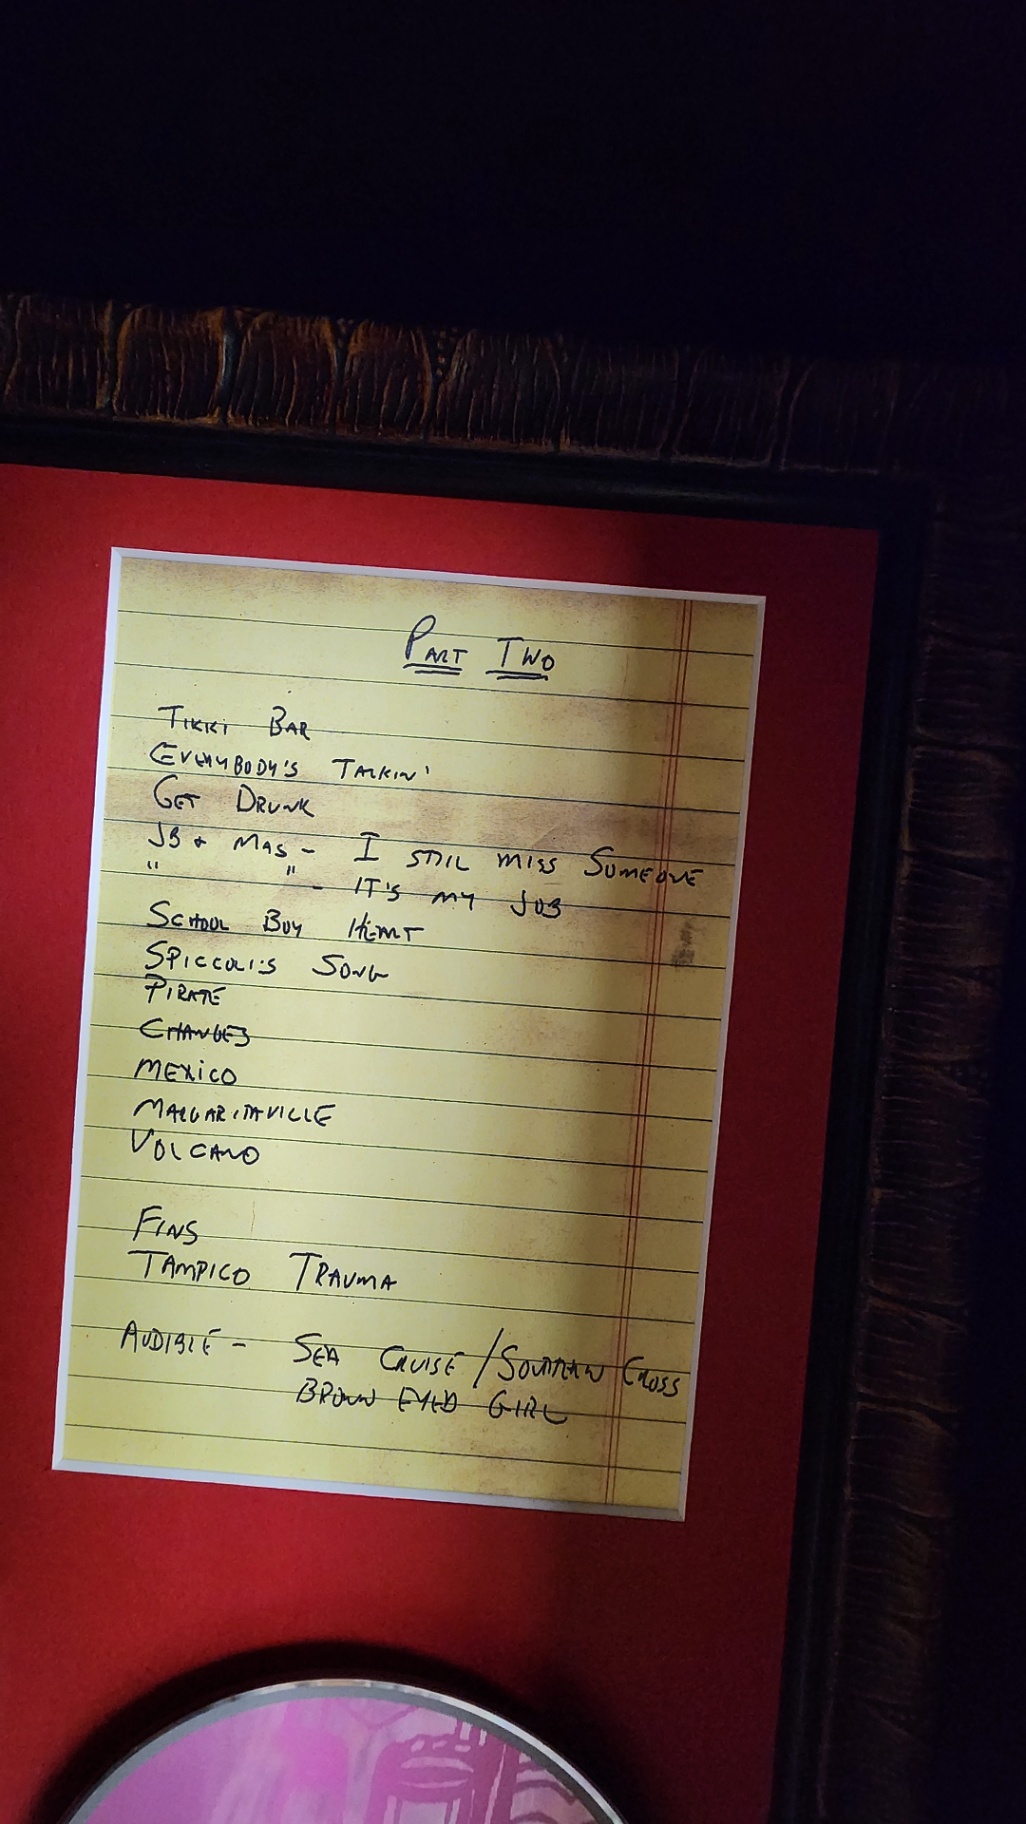 PART TWO
TIKKI BAR
EVERYBODY'S TALKIN'
GET DRUNK
JB + MAS - I STILL MISS SOMEONE
" " - IT'S MY JOB
SCHOOL BOY HEART
SPICCOLI'S SONG
PIRATE
CHANGES
MEXICO
MARGARITAVILLE
VOLCANO
FINS
TAMPICO TRAUMA
AUDIBLE - SEA CRUISE / SOUTHERN CROSS
BROWN EYED GIRL